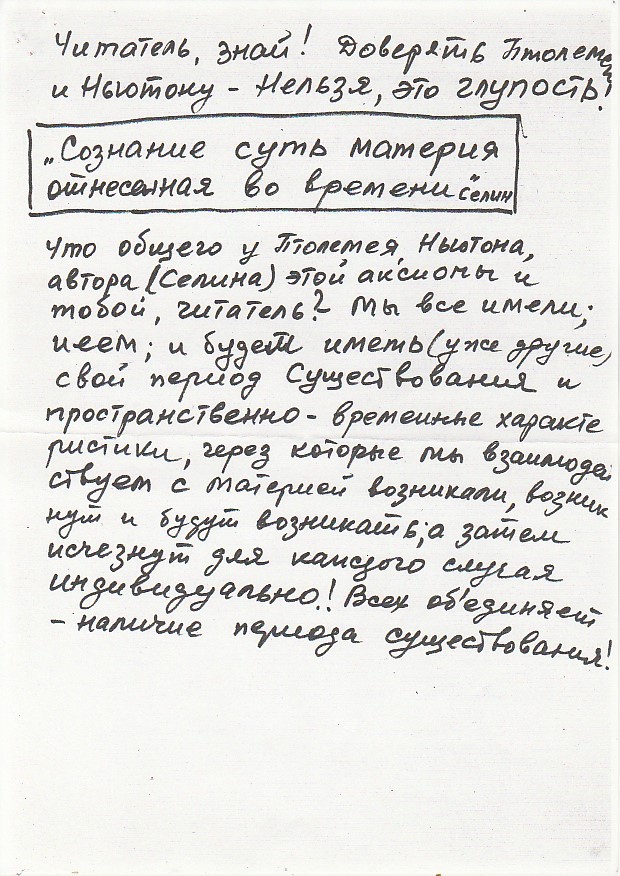 Читатель, знай! Доверять Птолемею
и Ньютону - Нельзя, это глупость!
„Сознание суть материя
отнесенная во времени" Селин
Что общего у Птолемея, Ньютона,
автора (Селина) этой аксиомы и
тобой, читатель? Мы все имели;
иеем; и будет иметь (уже другие)
свой период Существования и
пространственно - временные характе
ристики, через которые мы взаимодей
ствуем с материей возникали, возник
нут и будут возникать; а затем
исчезнут для каждого случая
индивидуально! Всех об'единяет
- наличие периода существования!